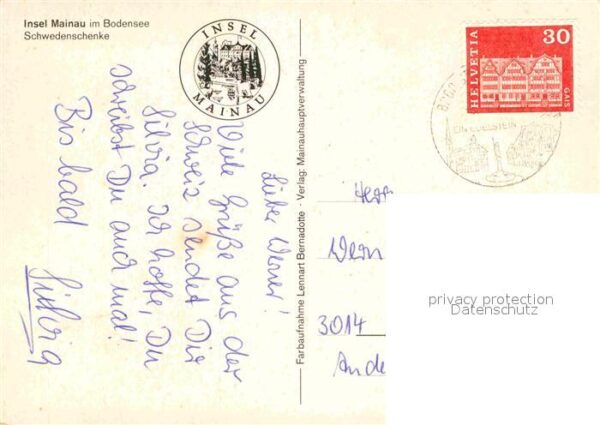 Insel Mainau im Bodensee
Schwedenschenke
INSEL
MAINAU
Lieber Werner!
Viele Grüße aus der
Schweiz sendet Dir
Silvia. Ich hoffe, Du
schreibst Du auch mal!
Bis bald
Silvia
Farbaufnahme Lennart Bernadotte - Verlag: Mainauhauptverwaltung
HELVETIA
30
GAIS
EIN EDELSTEIN
Herr
Wern
3014
Ande
privacy protection
Datenschutz